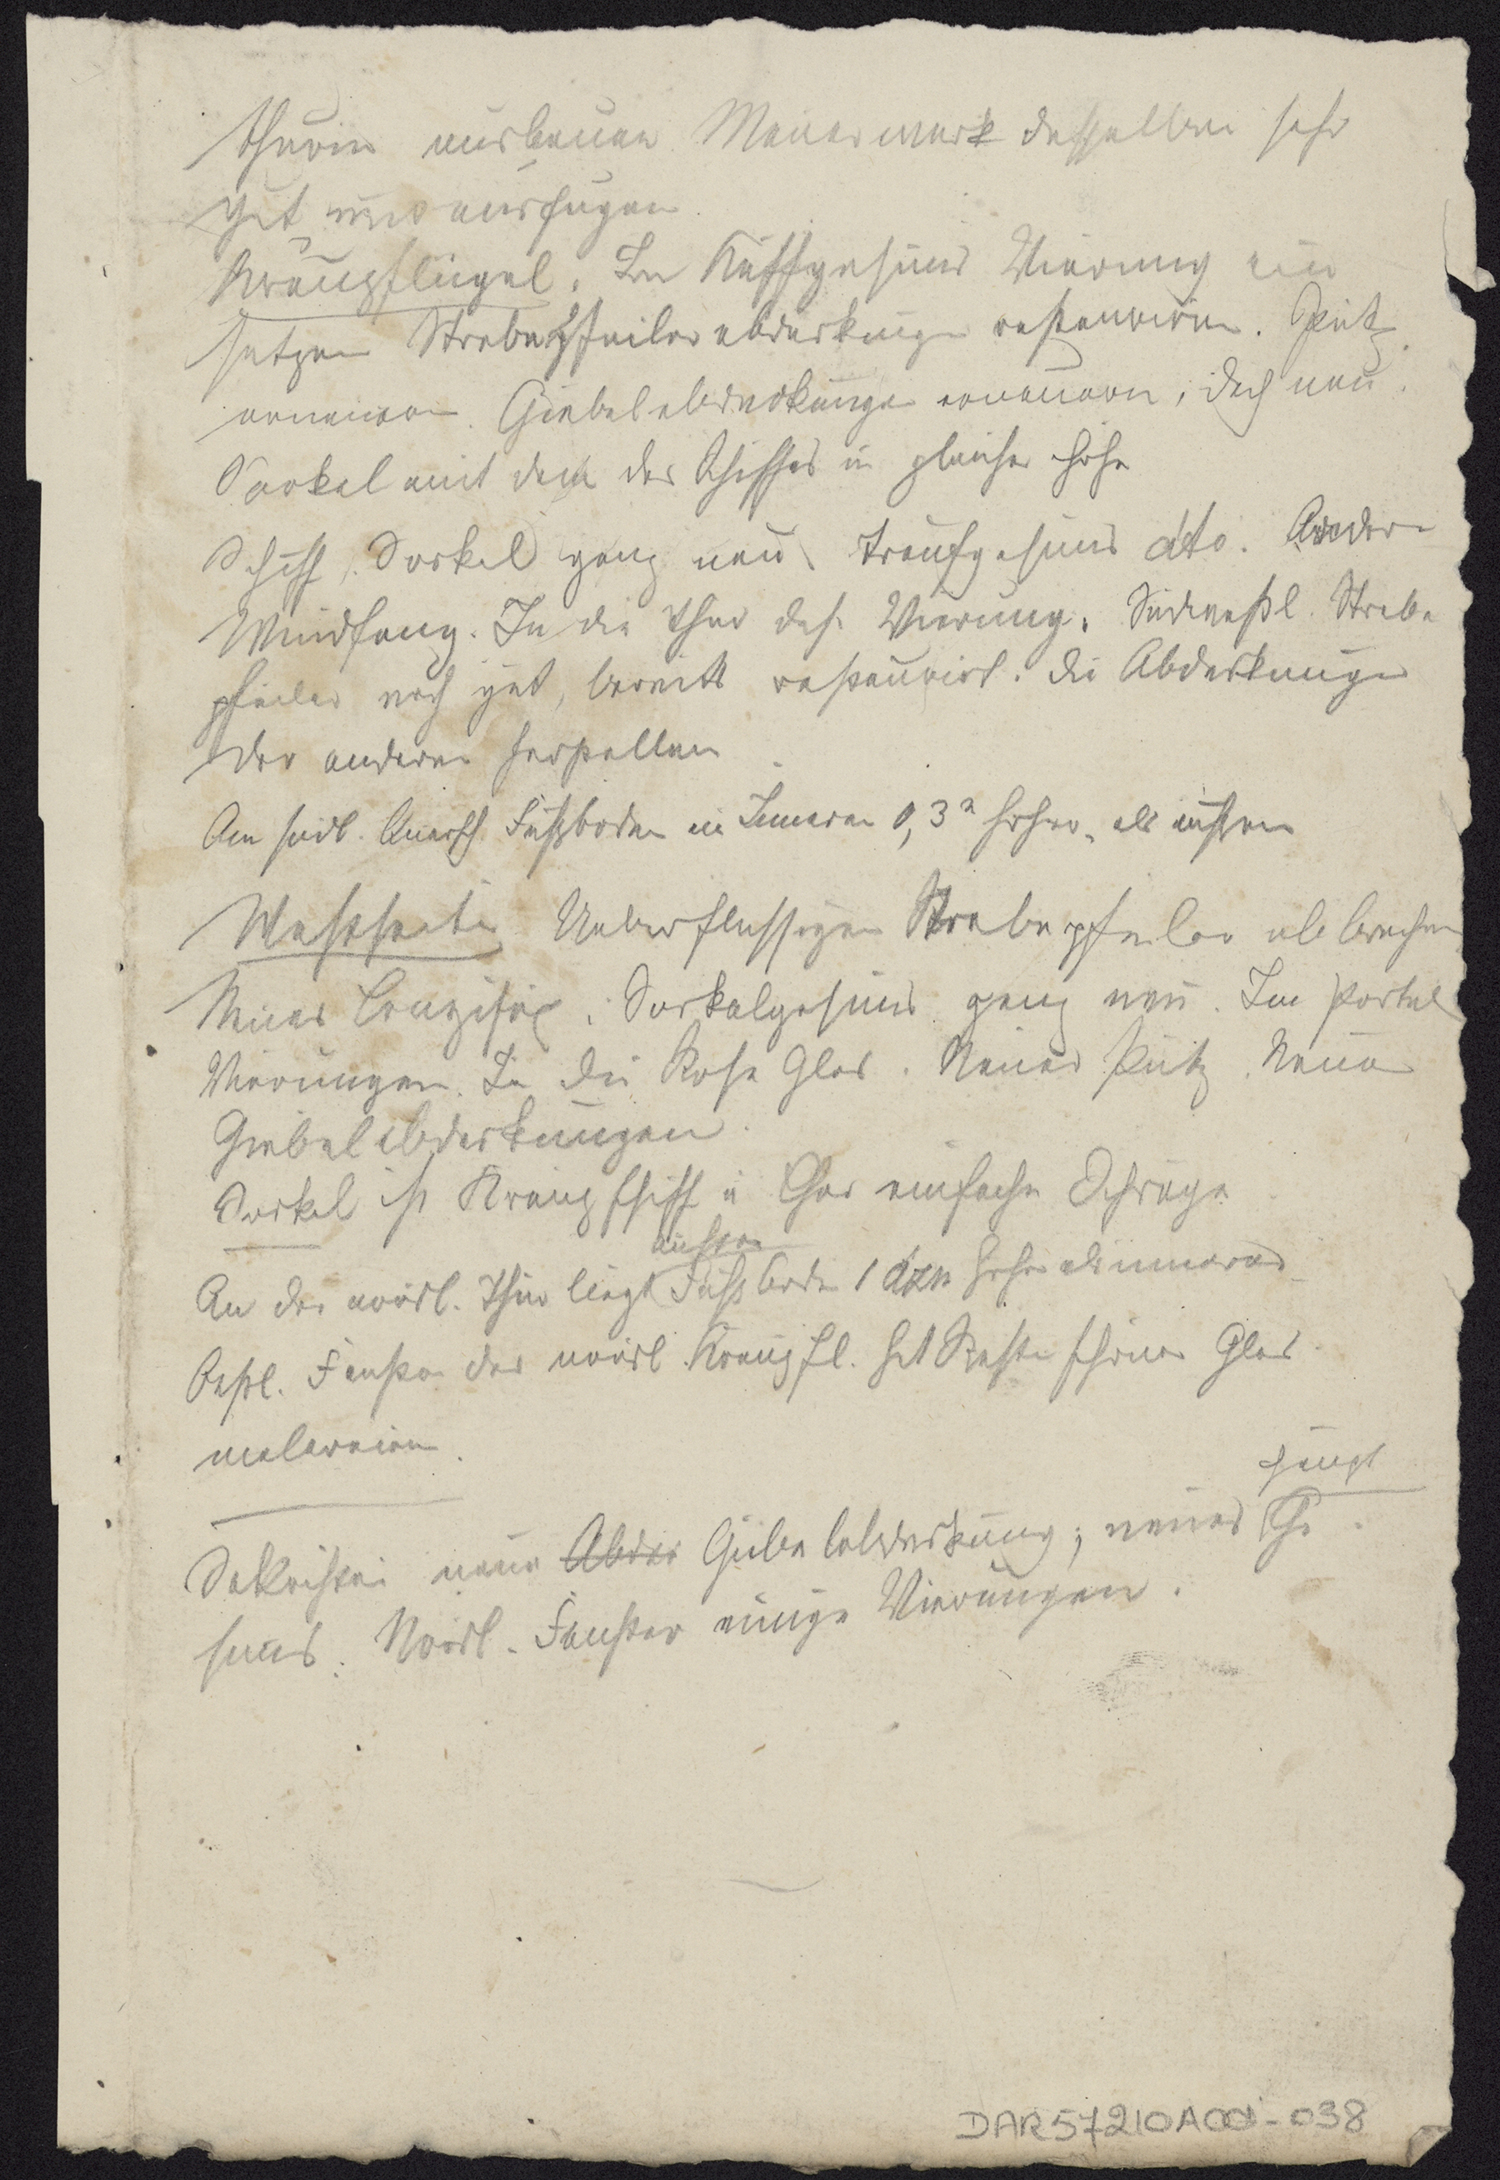 thurm ausbauen Mauerwerk desselben sehr
gut nur ausfugen.
Kreuzflügel. Im Kaffgesims Vierung ein
setzen Strebepfeilerabdeckungen restauriren. Putz
erneuern. Giebelabdeckungen erneuern, Dach neu.
Sockel mit dem des Schiffes in gleicher Höhe
Schiff. Sockel ganz neu. Traufgesims dto. Anderer
Windfang. In die Thür des. Vierung. Südwestl. Strebe
pfeiler noch gut, bereits restaurirt. Die Abdeckungen
der anderen herstellen
Am südl. Quersch. Fußboden im Inneren 0,3 m höher als außen
Westseite Ueberflüssigen Strebepfeiler abbrechen
Neues Cruzifix. Sockelgesims ganz neu. Im Portal
Vierungen. In die Rose Glas. Neuer Putz. Neue
Giebelabdeckungen.
Sockel ist Kreuzschiff u Chor einfache Schräge
außen
An der nördl. Thür liegt Fußboden 1 höher als innerer
Oestl. Fenster des nördl. Kreuzfl. hat Reste schöner Glas
malereien.
Haupt
Sakristei neue Abdec Giebelabdeckung; neues Ge
sims. Nördl. Fenster einige Vierungen.
DAR57210A001-038